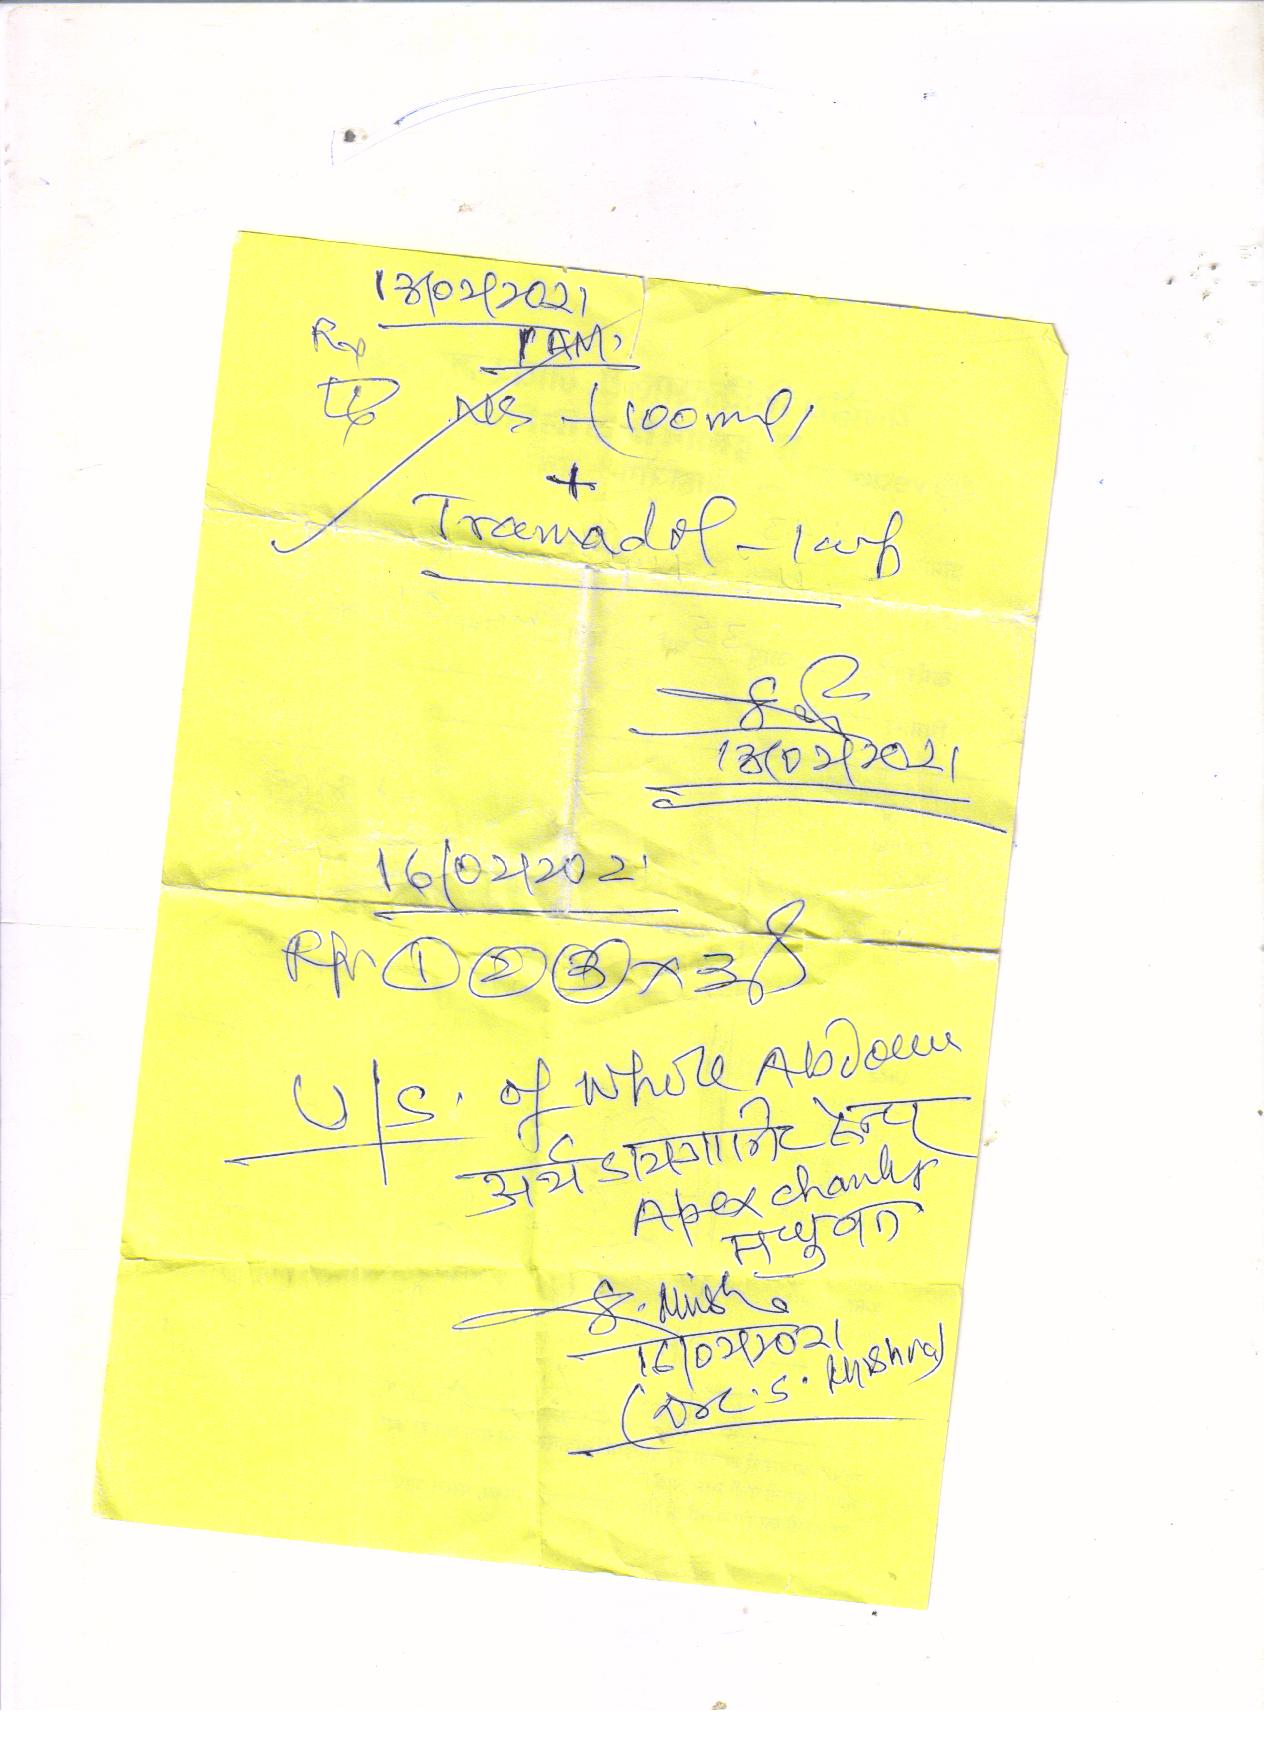 13/02/2021
Rx 1 AM.
NS - (100ml)
+
Tramadol - 1 amp
13/02/2021
16/02/2021
Rx ① ② ③ × 3
U/S. of Whole Abdomen
अर्थ डायग्नोस्टिक सेन्टर
Apex chamber
मधुवन
S. Mishra
16/02/2021
(Dr. S. Mishra)